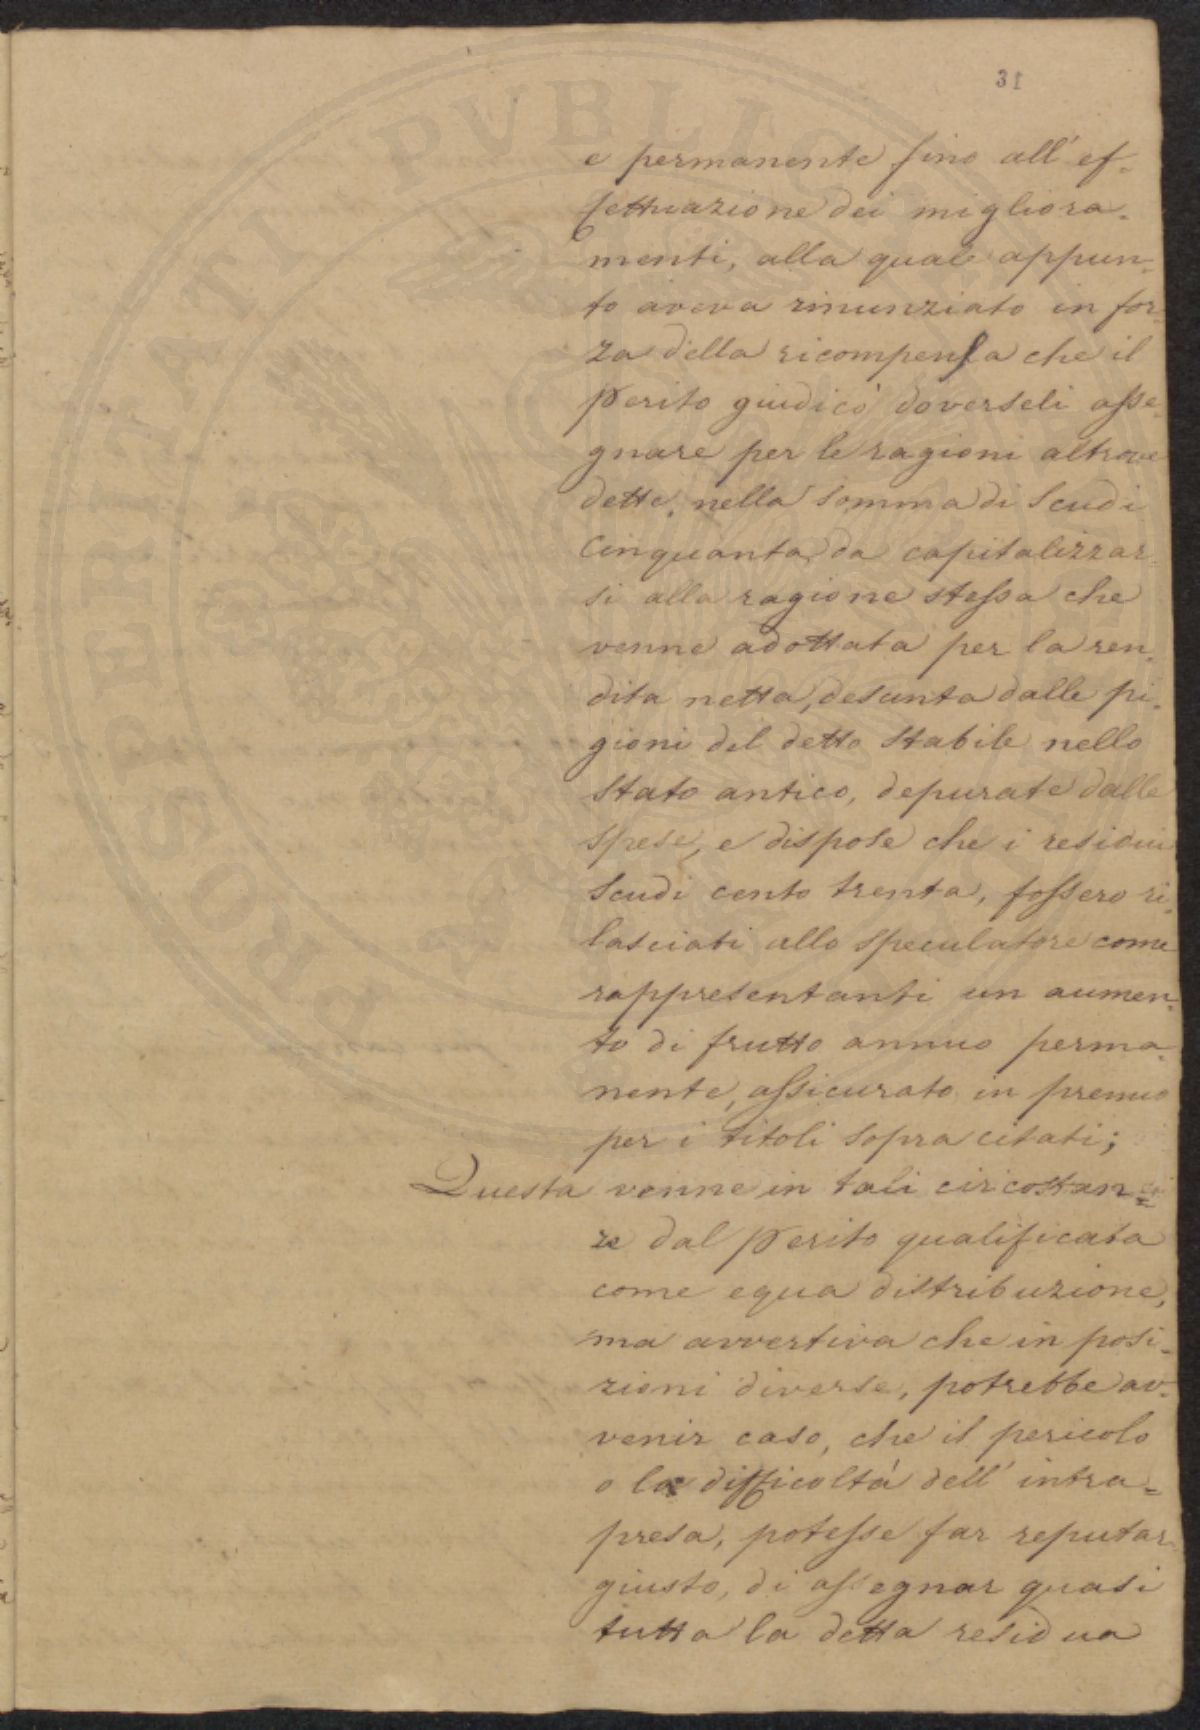 31
e permanente fino all' ef-
fettuazione dei migliora-
menti, alla quale appun-
to aveva rinunziato in for-
za della ricompensa che il
Perito giudicò doverseli asse-
gnare per le ragioni altrove
dette, nella somma di Scudi
Cinquanta, da capitalizzar-
si alla ragione stessa che
venne adottata per la ren-
dita netta, desunta dalle pi-
gioni del detto Stabile nello
Stato antico, depurate dalle
spese, e dispose che i residui
Scudi cento trenta, fossero ri-
lasciati allo speculatore come
rappresentanti un aumen-
to di frutto annuo perma-
nente, assicurato in premio
per i titoli sopra citati;
Questa venne in tali circostan=
ze dal Perito qualificata
come equa distribuzione,
ma avvertiva che in posi-
zioni diverse, potrebbe av-
venir caso, che il pericolo
o la difficoltà dell' intra=
presa, potesse far reputar
giusto, di assegnar quasi
tutta la detta residua
PROSPERITATI PVBLICAE